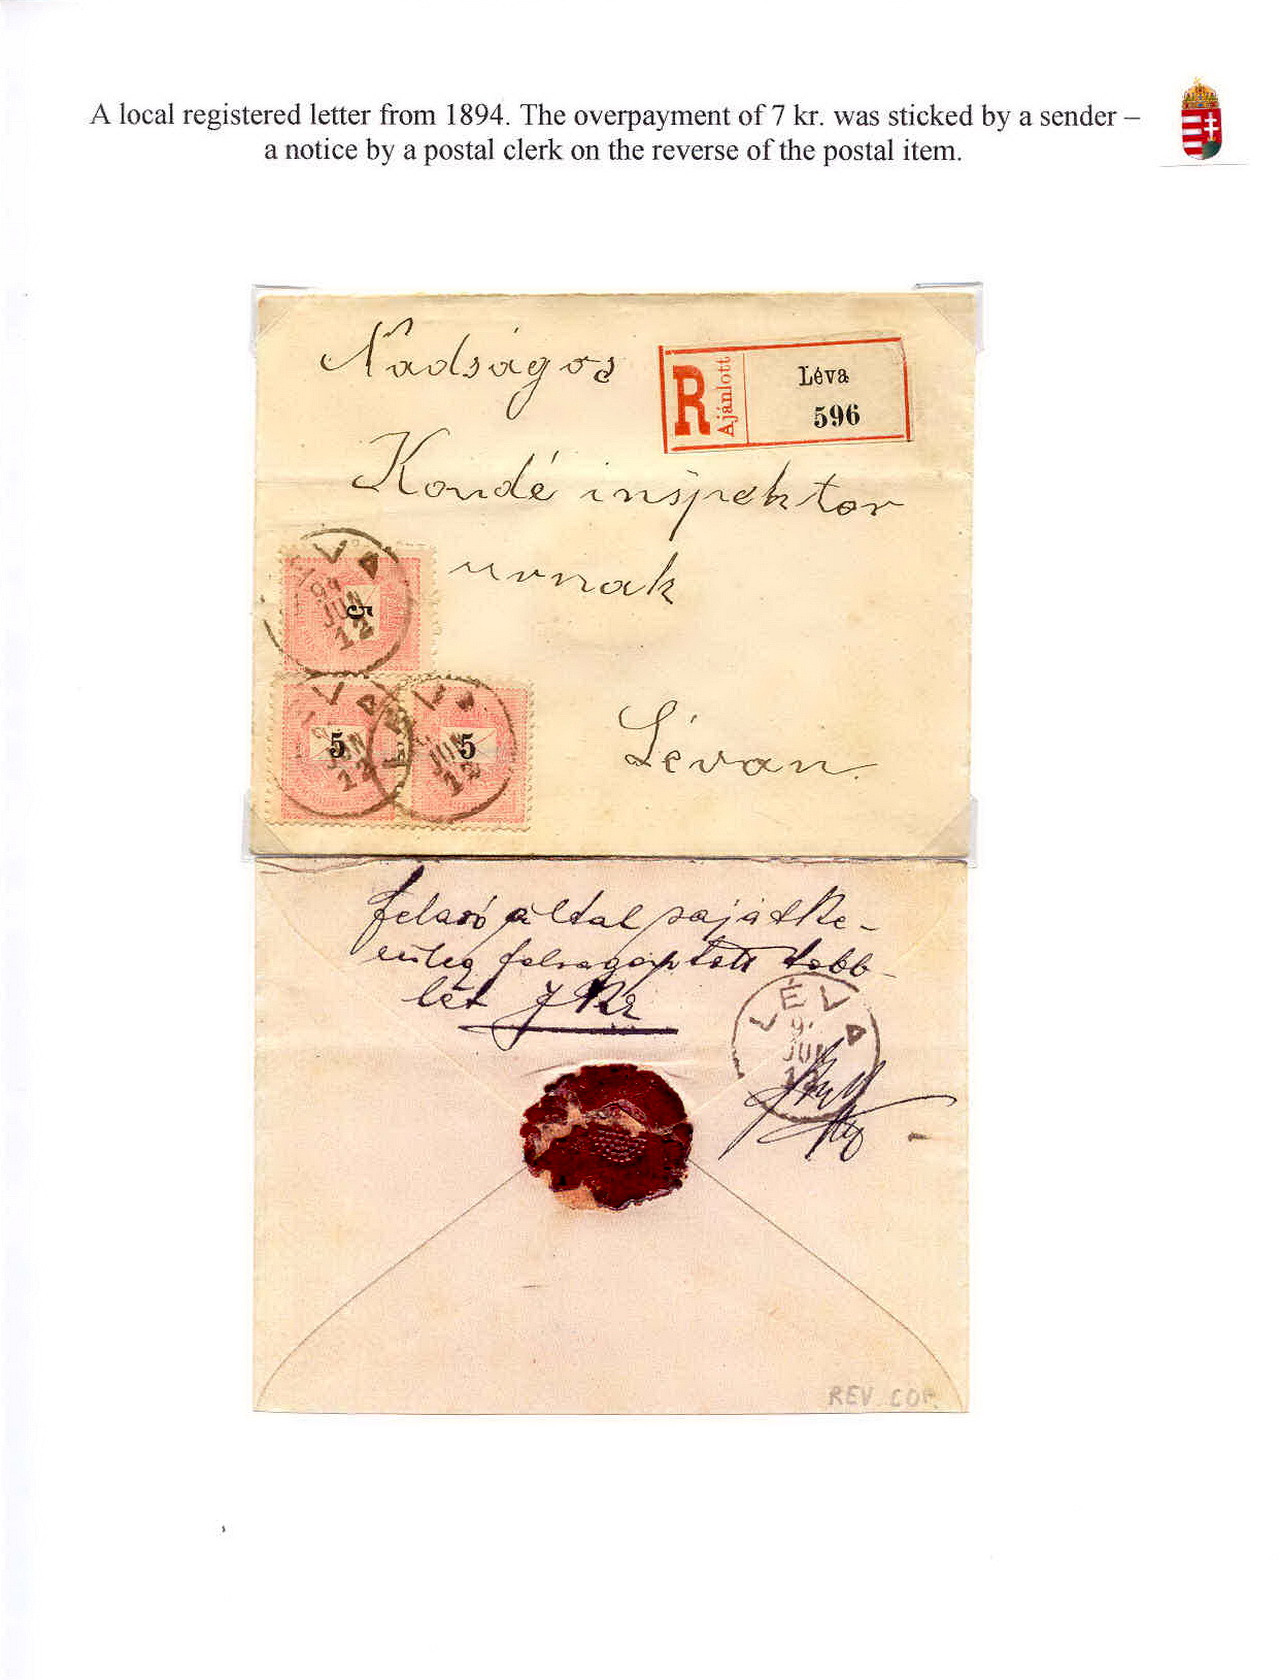 A local registered letter from 1894. The overpayment of 7 kr. was sticked by a sender –
a notice by a postal clerk on the reverse of the postal item.
Nadságos
R Ajánlott
Léva
596
Kondé inspektor
urnak
LÉVA
94
JUN
12
5
LÉVA
JUN
12
5
LÉVA
JUN
12
5
Léván.
feladó által sajátke-
zűleg felragasztott több-
let 7 Kr
LÉVA
9.
JUN
12
REV COP.